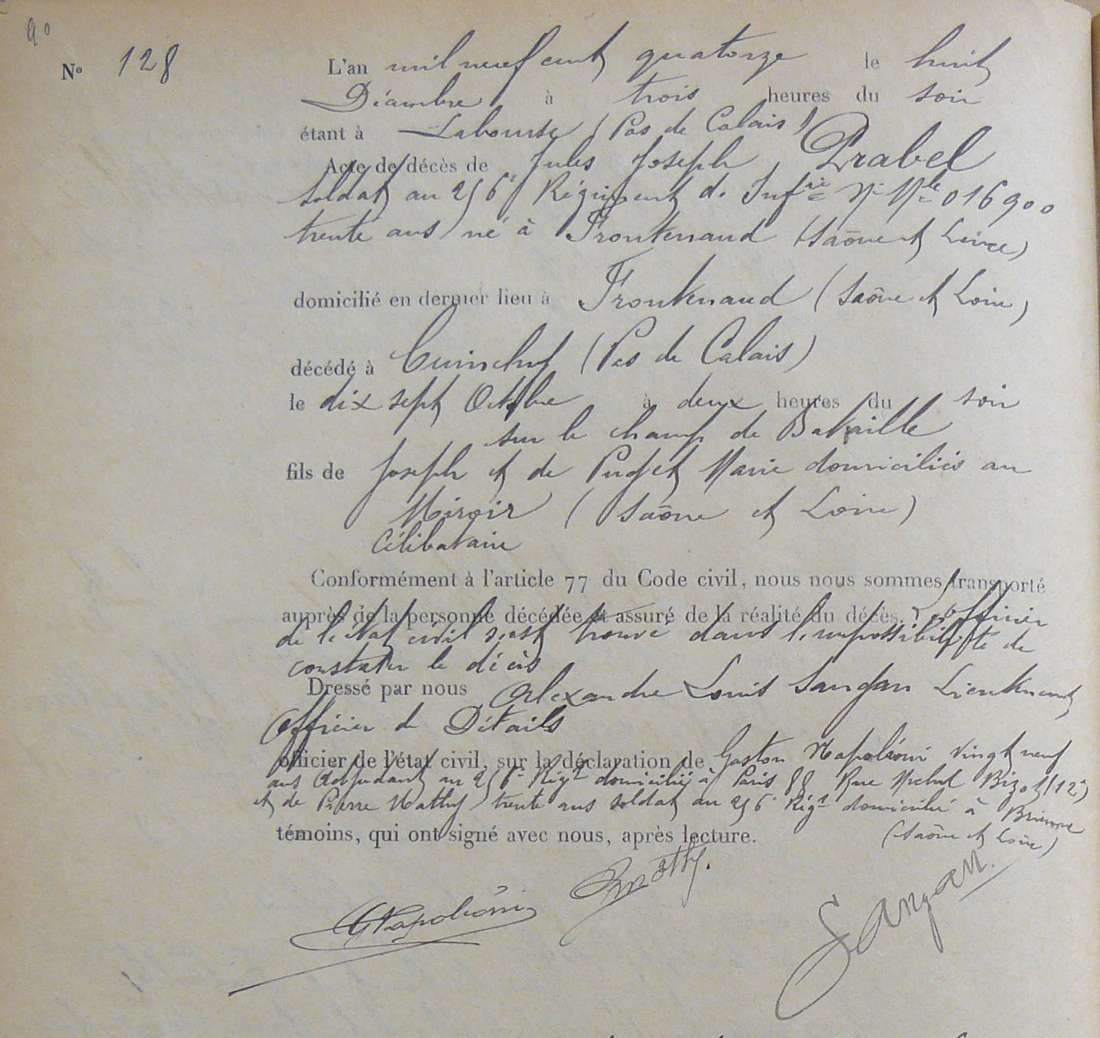 90
N° 128
L'an mil neuf cent quatorze le huit
Décembre à trois heures du soir
étant à Labourse (Pas de Calais)
Acte de décès de Jules Joseph Prabel
soldat au 256e Régiment d'Infrie N° Mle 016900
trente ans né à Frontenaud (Saône et Loire)
domicilié en dernier lieu à Frontenaud (Saône et Loire)
décédé à Cuinchy (Pas de Calais)
le dix sept Octobre à deux heures du soir
sur le champ de Bataille
fils de Joseph et de Puget Marie domiciliés au
Miroir (Saône et Loire)
Célibataire
Conformément à l'article 77 du Code civil, nous nous sommes transporté
auprès de la personne décédée et assuré de la réalité du décès. L'officier
de l'état civil s'est trouvé dans l'impossibilité de
constater le décès
Dressé par nous Alexandre Louis Sangan Lieutenant
Officier de Détails
officier de l'état civil, sur la déclaration de Gaston Napoléoni vingt neuf
ans Adjudant au 256e Régt domicilié à Paris 88 Rue Michel Bizot (12e)
et de Pierre Mathy trente ans soldat au 256e Régt domicilié à
(Saône et Loire)
témoins, qui ont signé avec nous, après lecture.
GNapoléoni Mathy Sangan